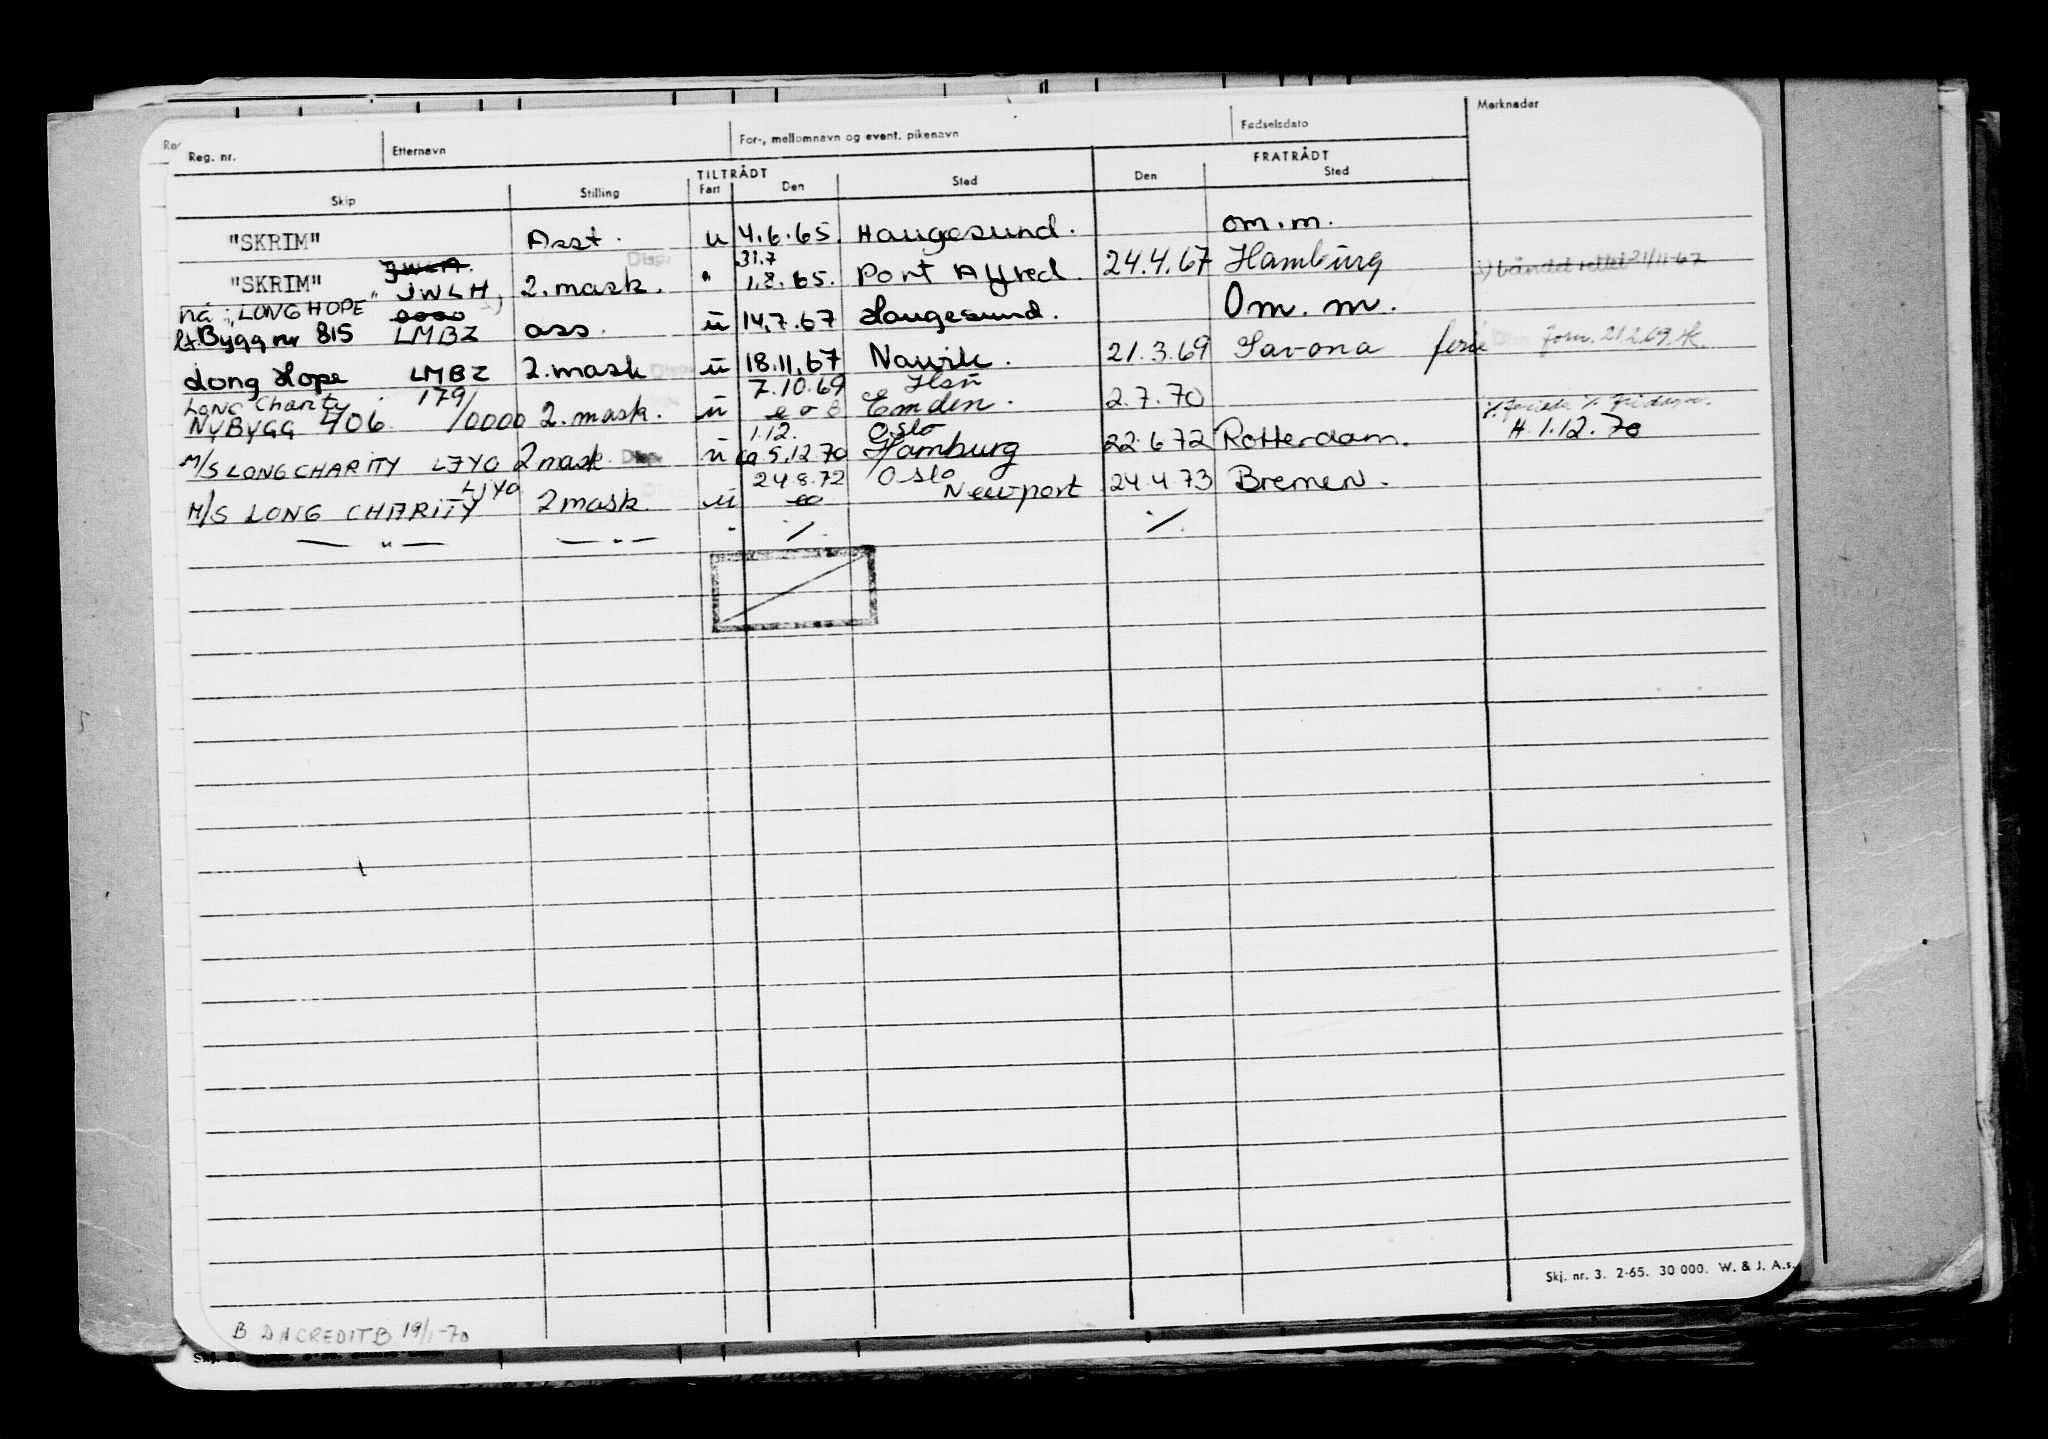 Reg. nr. Etternavn For-, mellomnavn og event. pikenavn Fødselsdato Merknader
TILTRÅDT FRATRÅDT
Skip Stilling Fart Den Sted Den Sted
"SKRIM" Asst. u 4.6.65. Haugesund. om.m.
31.7
"SKRIM" JWLH 2. mask. " 1.8.65. Port Alfred. 24.4.67 Hamburg
nå: "LONG HOPE"
Bygg nr 815 0000 LMBZ ass. ü 14.7.67 Haugesund. Om. m.
Long Hope LMBZ 2. mask ü 18.11.67 Navik. 21.3.69 Savona ferie
Long Charity 179/ 7.10.69
NYBYGG 406 /0000 2. mask. ü Emden. 2.7.70
1.12. Oslo H. 1.12.70
M/S LONG CHARITY LJYO 2 mask ü 5.12.70 Hamburg 22.6.72 Rotterdam.
LJYO 24.8.72 Oslo
M/S LONG CHARITY 2 mask. ü Newport 24.4.73 Bremen.
— " — — " — " ./. ./.
Skj. nr. 3. 2-65. 30 000. W. & J. A.s.
B DNCREDITB 19/1-70